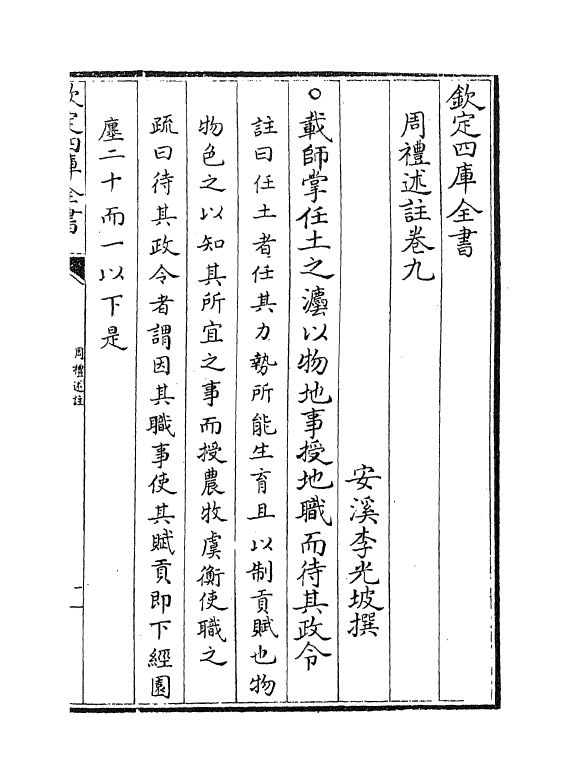 欽定四庫全書
周禮述註卷九
安溪李光坡撰
○載師掌任土之灋以物地事授地職而待其政令
註曰任土者任其力勢所能生育且以制貢賦也物
物色之以知其所宜之事而授農牧虞衡使職之
疏曰待其政令者謂因其職事使其賦貢即下經園
廛二十而一以下是
欽定四庫全書
周禮述註